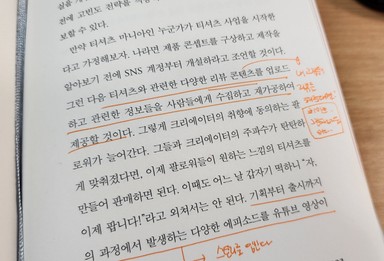 전에 고민도 전략을
보할 수 있다.
만약 티셔츠 마니아인 누군가가 티셔츠 사업을 시작한
다고 가정해보자. 나라면 제품 콘셉트를 구상하고 제작을
알아보기 전에 SNS 계정부터 개설하라고 조언할 것이다.
그런 다음 티셔츠와 관련한 다양한 리뷰 콘텐츠를 업로드
하고 관련한 정보들을 사람들에게 수집하고 재가공하여
제공할 것이다. 그렇게 크리에이터의 취향에 동의하는 팔
로워가 늘어간다. 그들과 크리에이터의 주파수가 탄탄하
게 맞춰졌다면, 이제 팔로워들이 원하는 느낌의 티셔츠를
만들어 판매하면 된다. 이때도 어느 날 갑자기 떡하니 “자,
이제 팝니다!”라고 외쳐서는 안 된다. 기획부터 출시까지
의 과정에서 발생하는 다양한 에피소드를 유튜브 영상이